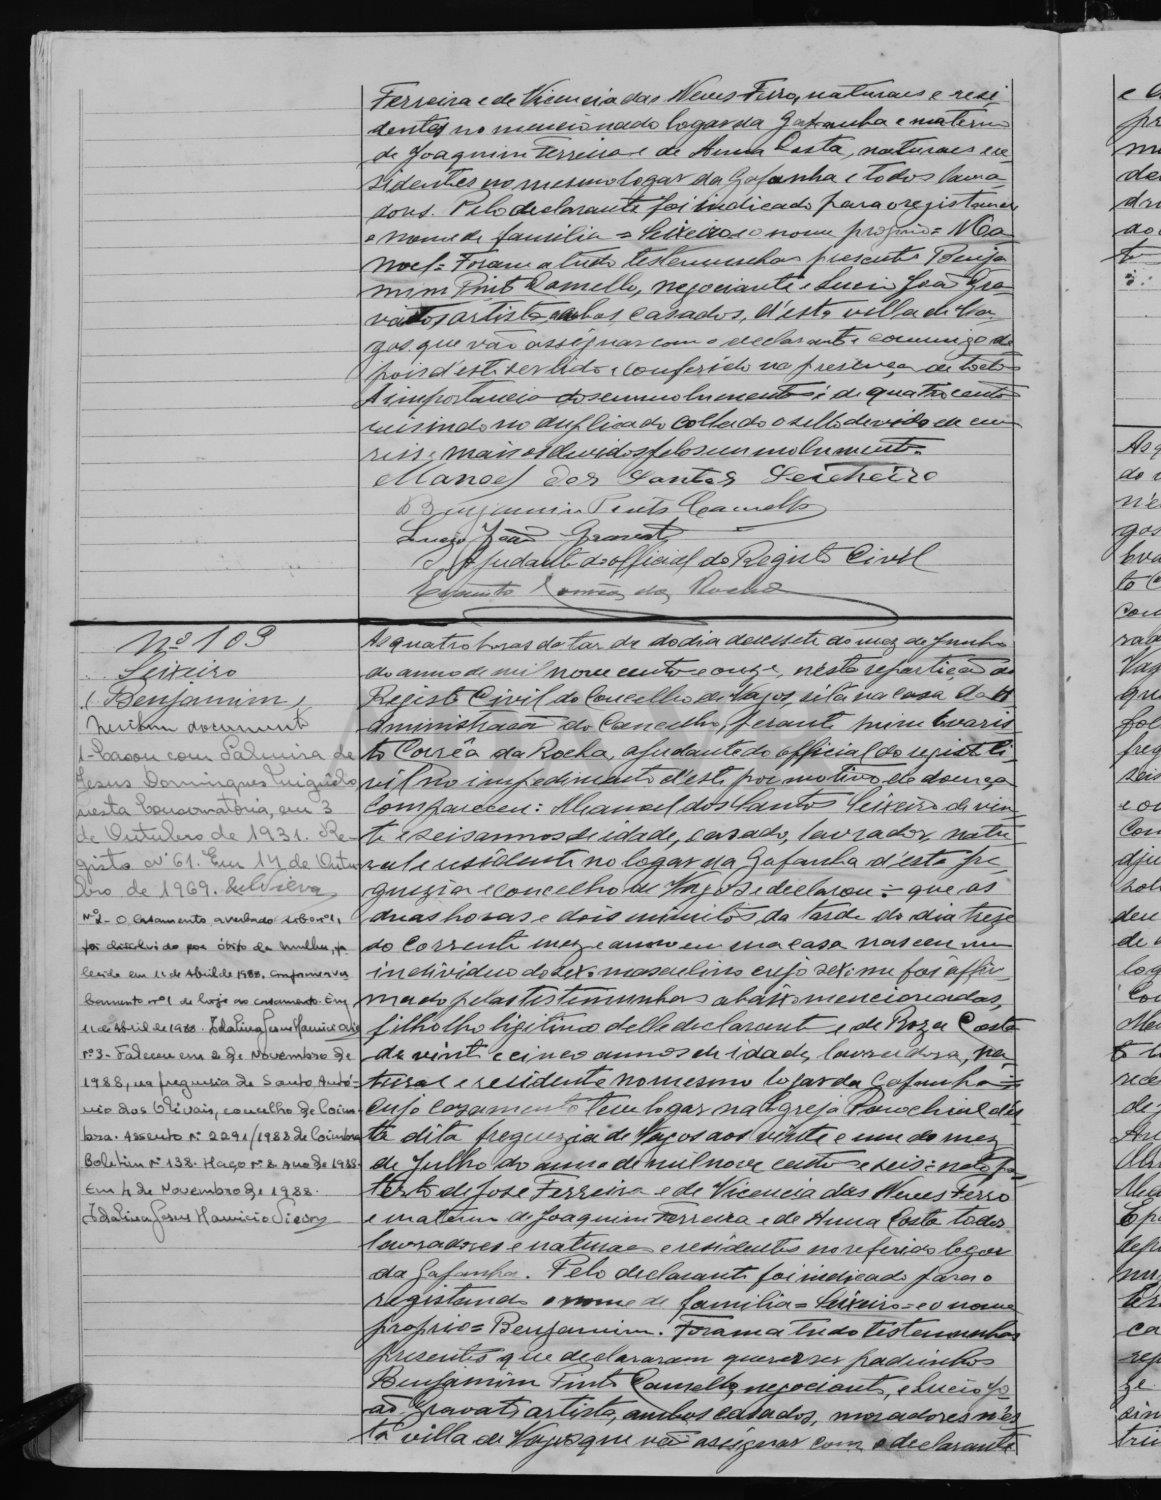 Ferreira e de Vicencia das Neves Ferro, naturaes e resi
dentes no mencionado logar da Gafanha e materno
de Joaquim Ferreira e de Anna Costa, naturaes e re-
sidentes no mesmo logar da Gafanha e todos lavra-
dores. Pelo declarante foi indicado para o registando
o nome de familia = Seixeiro e o nome proprio = Ma
noel = Foram a tudo testemunhas presentes Benja
mim Pinto Camello, negociante e Lucio João Gra-
vato, artista, ambos casados, d'esta villa de Va-
gos que vão assignar com o declarante e commigo de
pois d'este ser lido e conferido na presença de todos
A importancia dos emmolumentos é de quatrocentos
reis indo no duplicado collado o sello devido de cem
reis e mais os devidos pelos emmolumentos.
Manoel dos Santos Seicheiro
Benjamim Pinto Camello
Lucio João Gravato
O Ajudante do official do Registo Civil
Evaristo Corrêa da Rocha
Nº 109
Seixeiro
(Benjamim)
Nenhum documento
1- Casou com Palmira de
Jesus Domingues
nesta Conservatória, em 3
de Outubro de 1931. Re-
gisto nº 61. Em 14 de Outu
bro de 1969.
Nº2- O casamento averbado sob o nº1,
foi dissolvido por óbito da mulher, fa
lecida em 11 de Abril de 1988, conforme aver
bamento nº1 de hoje ao casamento. Em
11 de Abril de 1988.
Nº3- Faleceu em 2 de Novembro de
1988, na freguesia de Santo Antó-
nio dos Olivais, concelho de Coim-
bra. Assento nº 2291/1988 de Coimbra
Boletim nº 138. Maço nº 2 Ano de 1988.
Em 4 de Novembro de 1988.
As quatro horas da tarde do dia dezessete do mez de Junho
do anno de mil nove centos e onze, n'esta repartição do
Registo Civil do Concelho de Vagos, sita na casa da A
dministração do Concelho, perante mim Evaris
to Corrêa da Rocha, ajudante do official do registo Ci-
vil no impedimento d'este por motivo de doença
Compareceu: Manoel dos Santos Seixeiro de vin
te e seis annos de idade, casado, lavrador, natu
ral e residente no logar da Gafanha d'esta fre
guezia e concelho de Vagos e declarou: que as
duas horas e dois minutos da tarde do dia treze
do corrente mez e anno em sua casa nasceu um
individuo do sexo masculino cujo sexo me foi affir
mado pelas testemunhas abaixo mencionadas,
filho ligitimo delle declarante e de Roza Costa
de vinte e cinco annos de idade, lavradora, na
tural e residente no mesmo logar da Gafanha =
cujo cazamento teve logar na Igreja Parochial d'es
ta dita freguezia de Vagos aos vinte e um do mez
de Julho do anno de mil nove centos e seis: neto pa
terno de José Ferreira e de Vicencia das Neves Ferro
e materno de Joaquim Ferreira e de Anna Costa todos
lavradores e naturaes e residentes no referido logar
da Gafanha. Pelo declarante foi indicado para o
registando o nome de familia = Seixeiro = e o nome
proprio = Benjamim. Foram a tudo testemunhas
presentes que declararam querer ser padrinhos
Benjamim Pinto Camello, negociante, e Lucio Jo
ão Gravato, artista, ambos casados, moradores n'es
ta villa de Vagos que vão assignar com o declarante